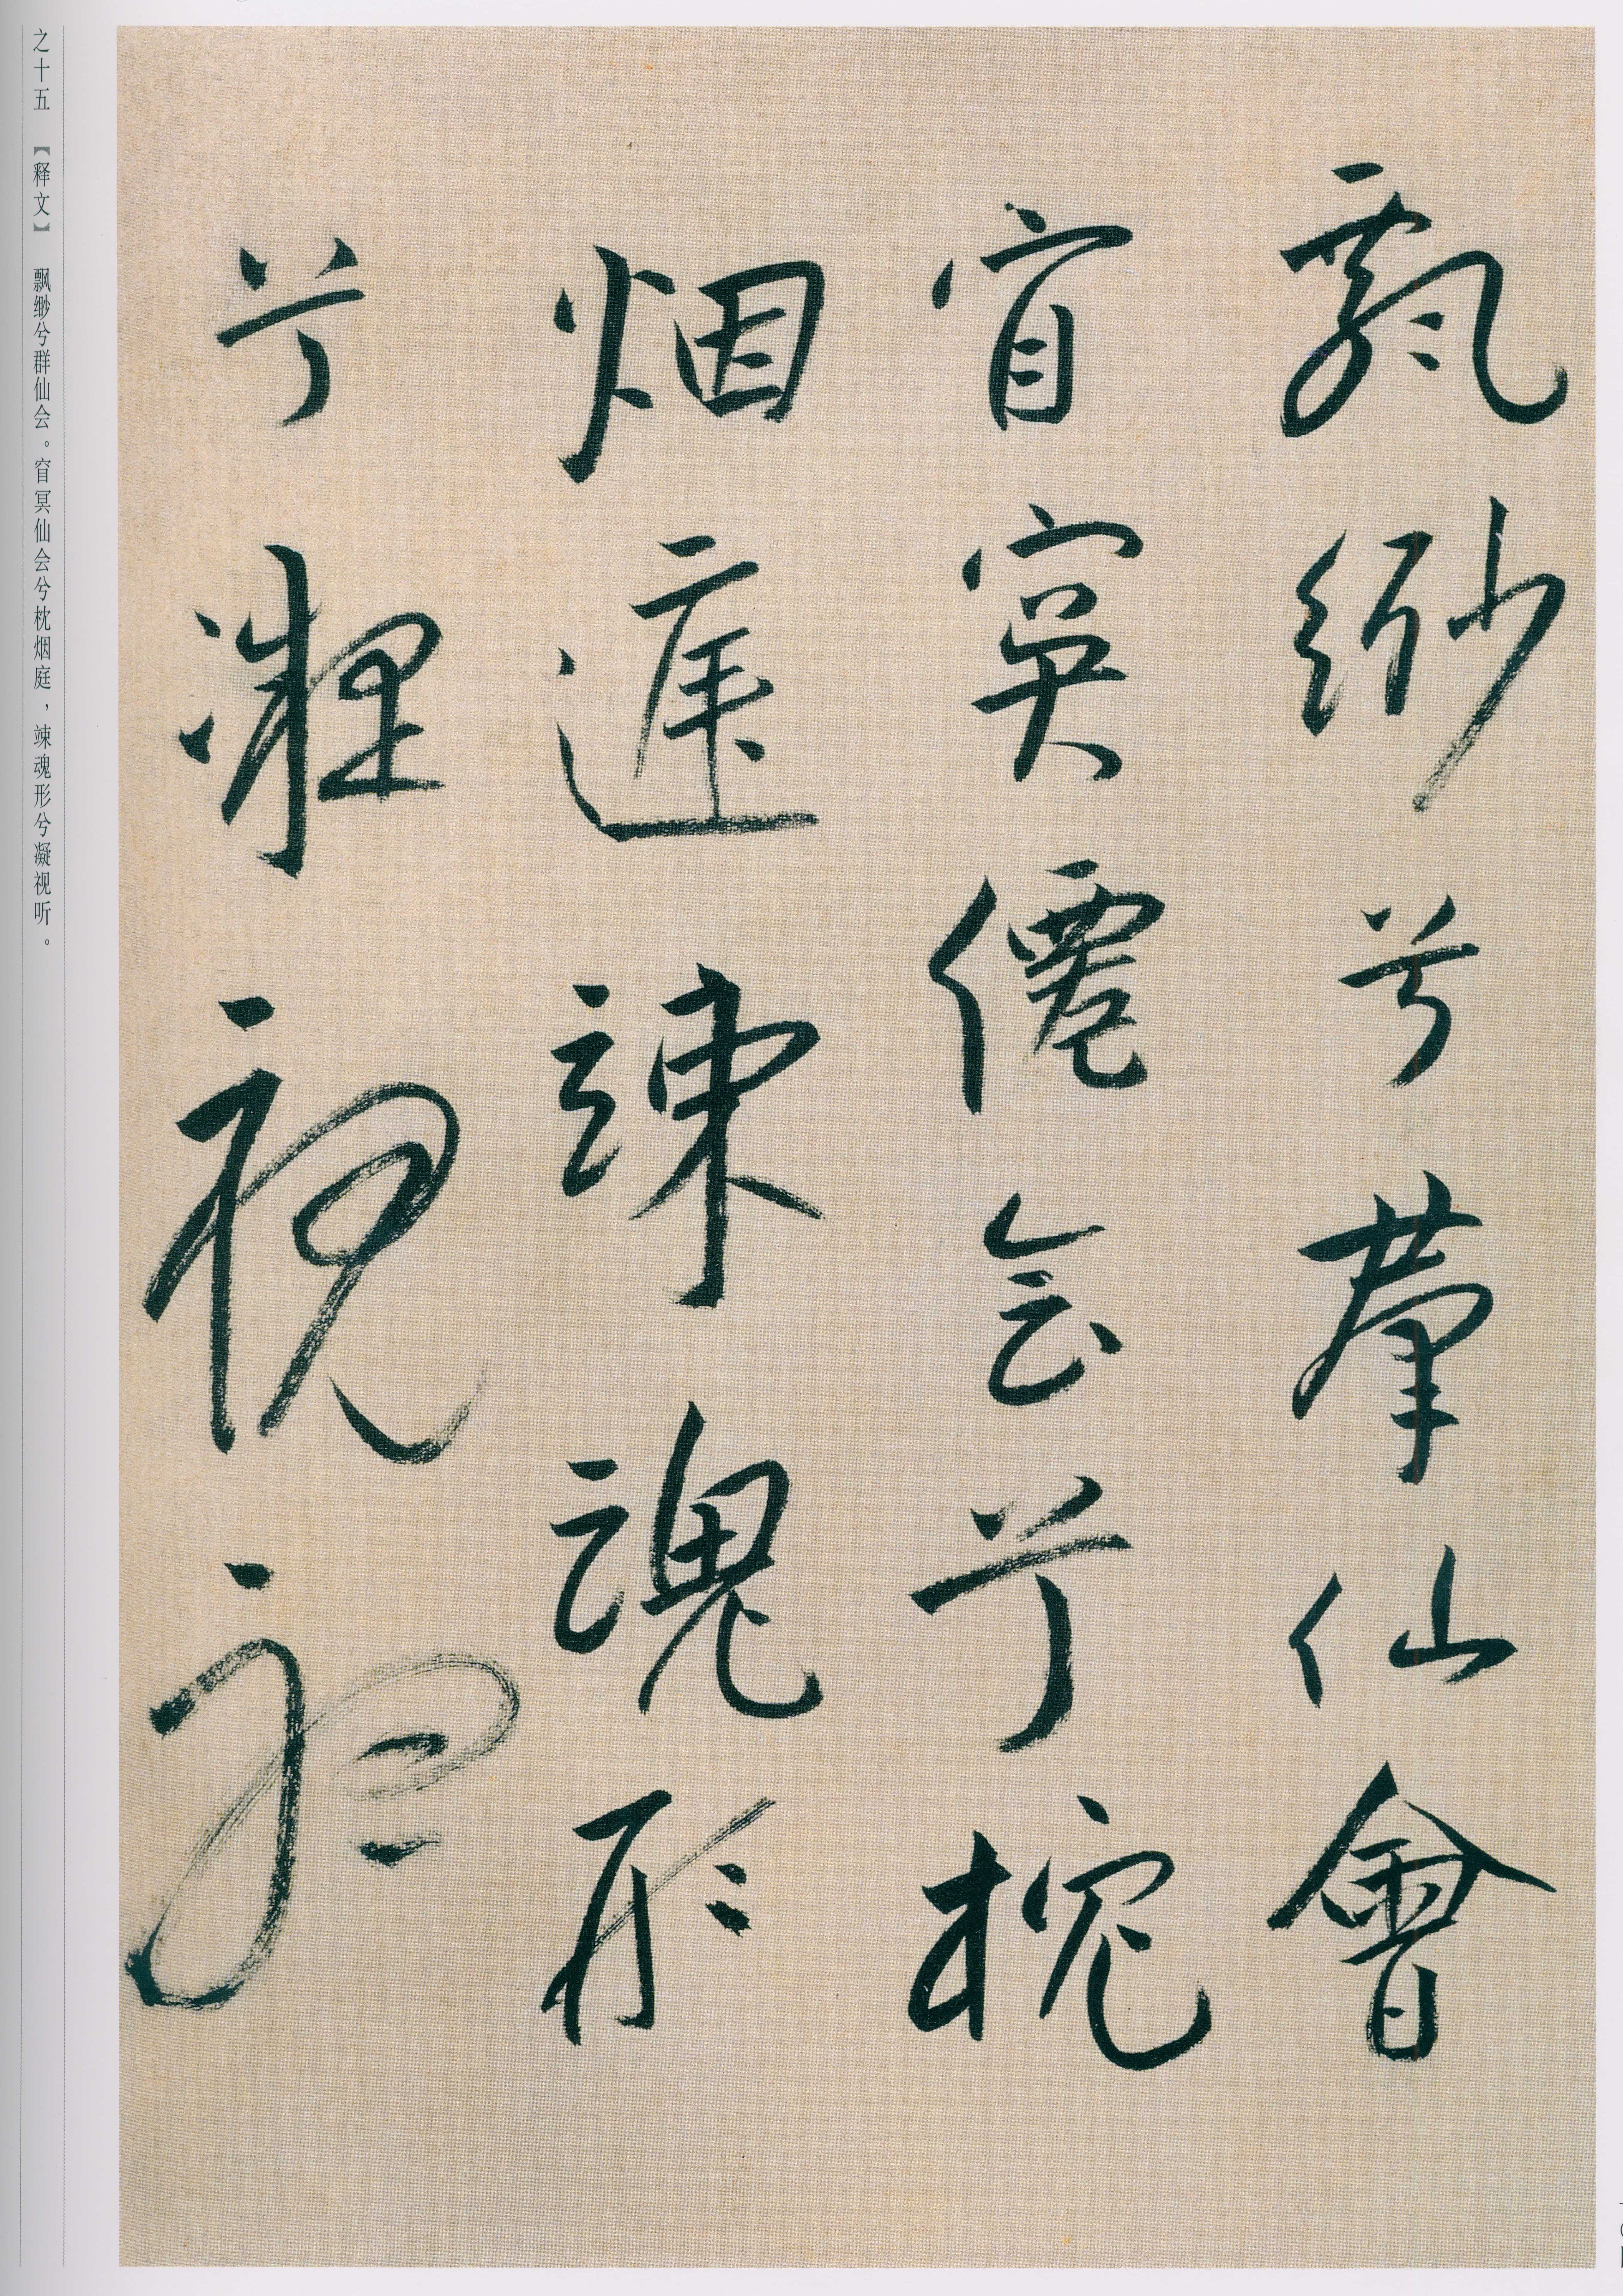 飄緲兮羣仙會
窅冥僊會兮枕
烟庭竦魂形
兮凝視聽
之十五 【释文】 飘缈兮群仙会。窅冥仙会兮枕烟庭，竦魂形兮凝视听。